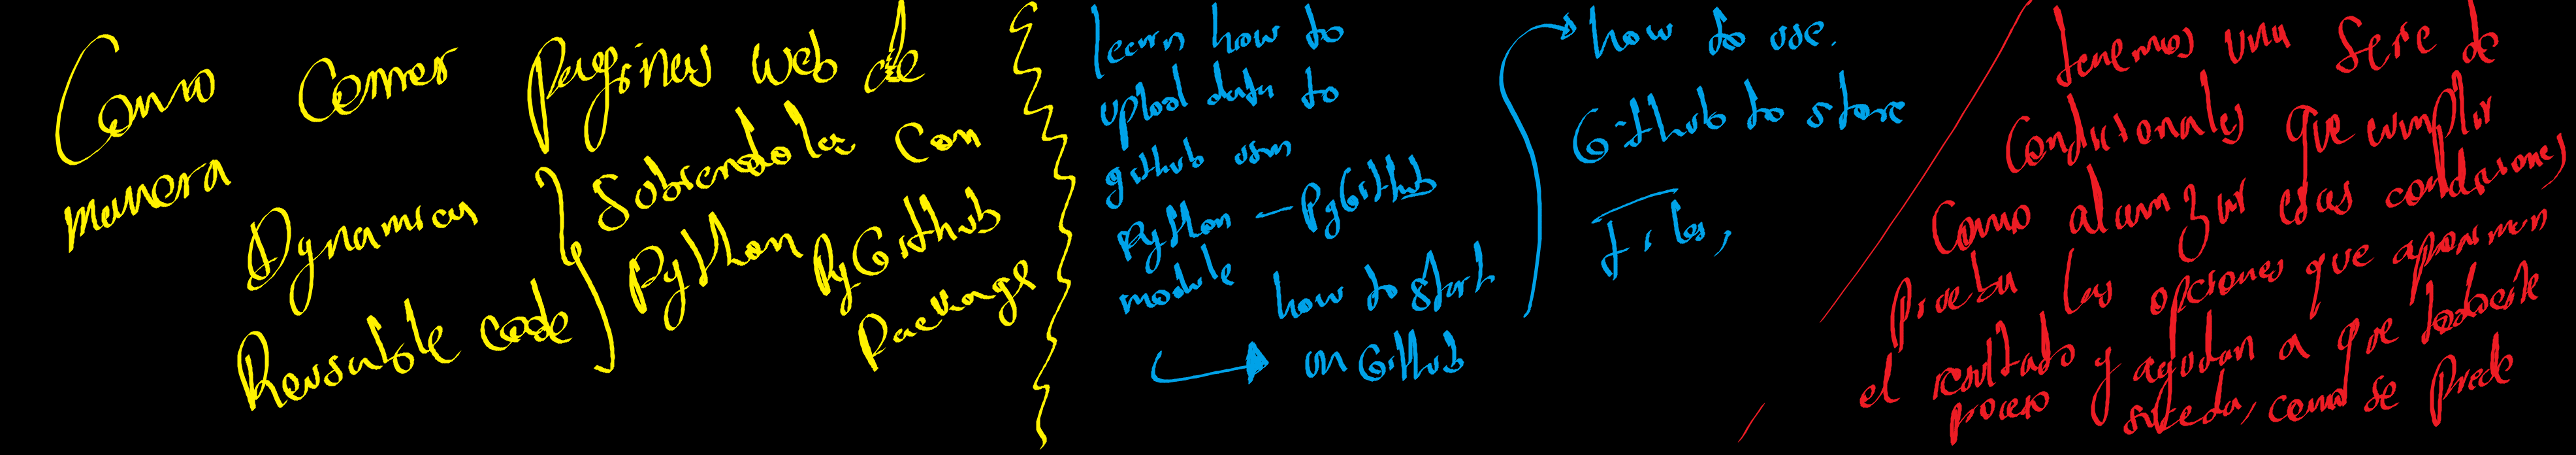 Como Correr Paginas web de
manera
Dynamica
Reusable code
Sobiendolas con
Python PyGithub
Package
learn how to
upload data to
github usin
Python — PyGitHub
module
how to start
on GitHub
how to use.
Github to store
Files,
tenemos una Serie de
Condicionales que cumplir
Como alcanzar esas condiciones
Prueba las opciones que aproximan
el resultado y ayudan a que todo este
proceso suceda, como se Puede